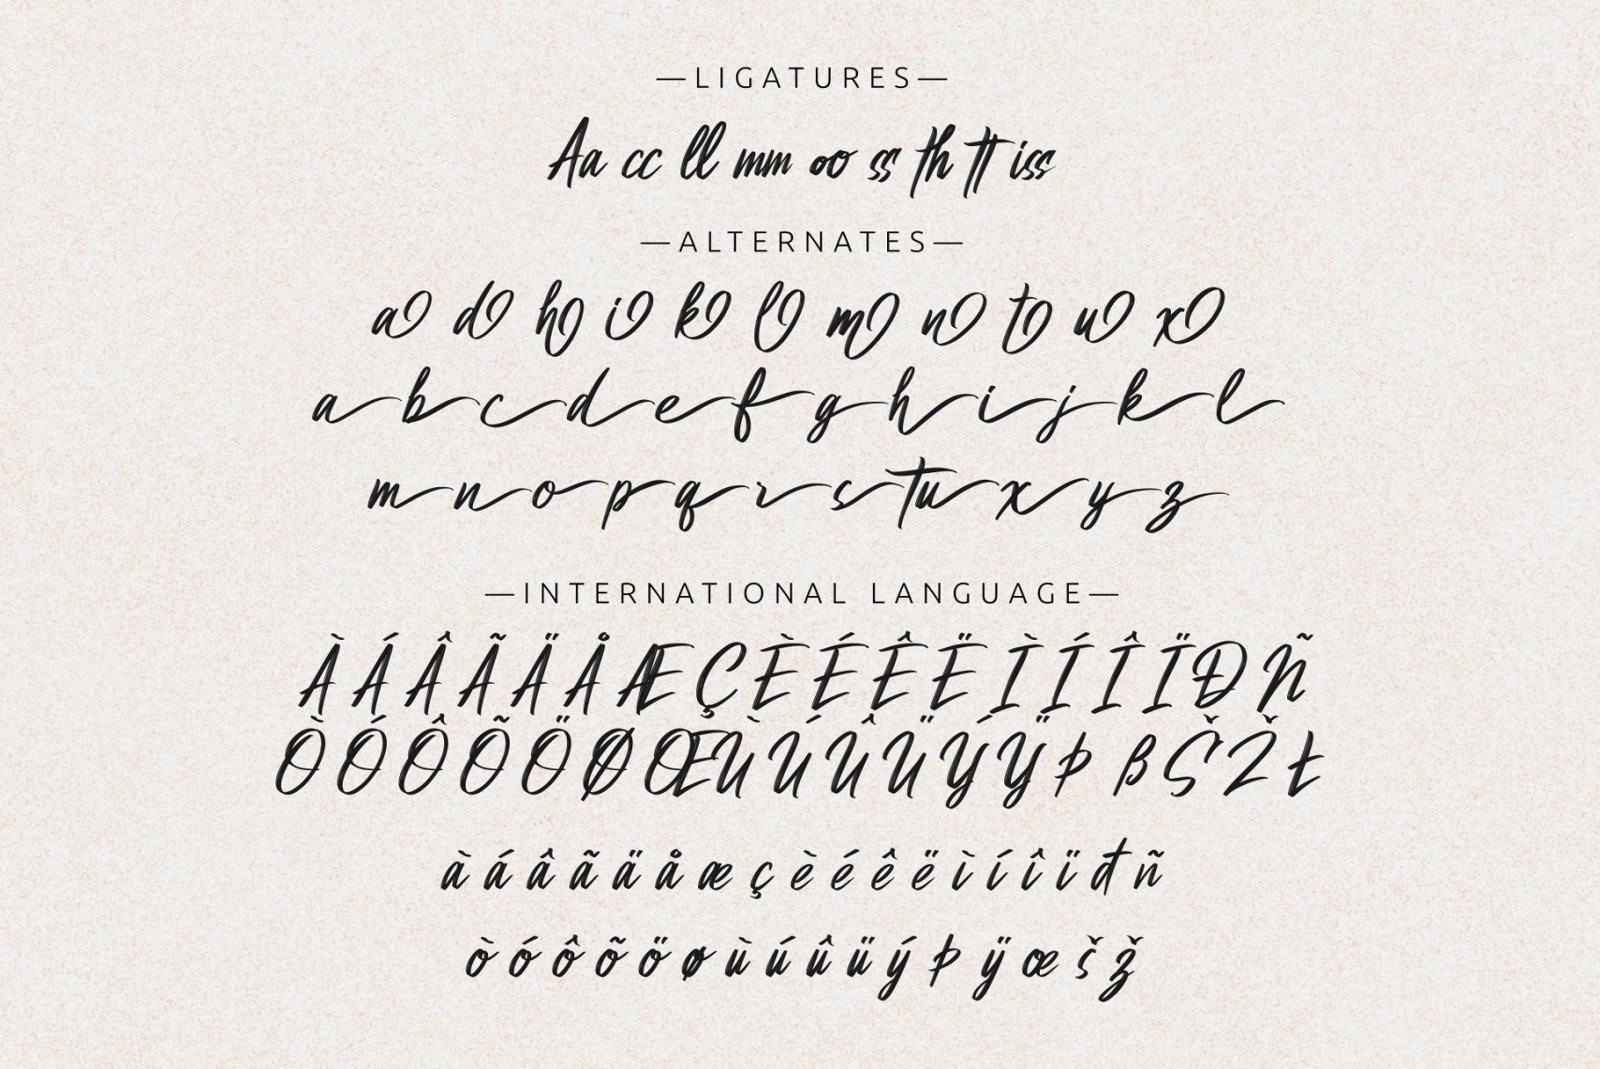 —LIGATURES—
Aa cc ll mm oo ss th tt iss
—ALTERNATES—
a d h i k l m n t u x
a b c d e f g h i j k l
m n o p q r s t u x y z
—INTERNATIONAL LANGUAGE—
À Á Â Ã Ä Å Æ Ç È É Ê Ë Ì Í Î Ï Đ Ñ
Ò Ó Ô Õ Ö Ø Œ Ù Ú Û Ü Ý Ÿ Þ ß Š Ž Ł
à á â ã ä å æ ç è é ê ë ì í î ï đ ñ
ò ó ô õ ö ø ù ú û ü ý þ ÿ œ š ž